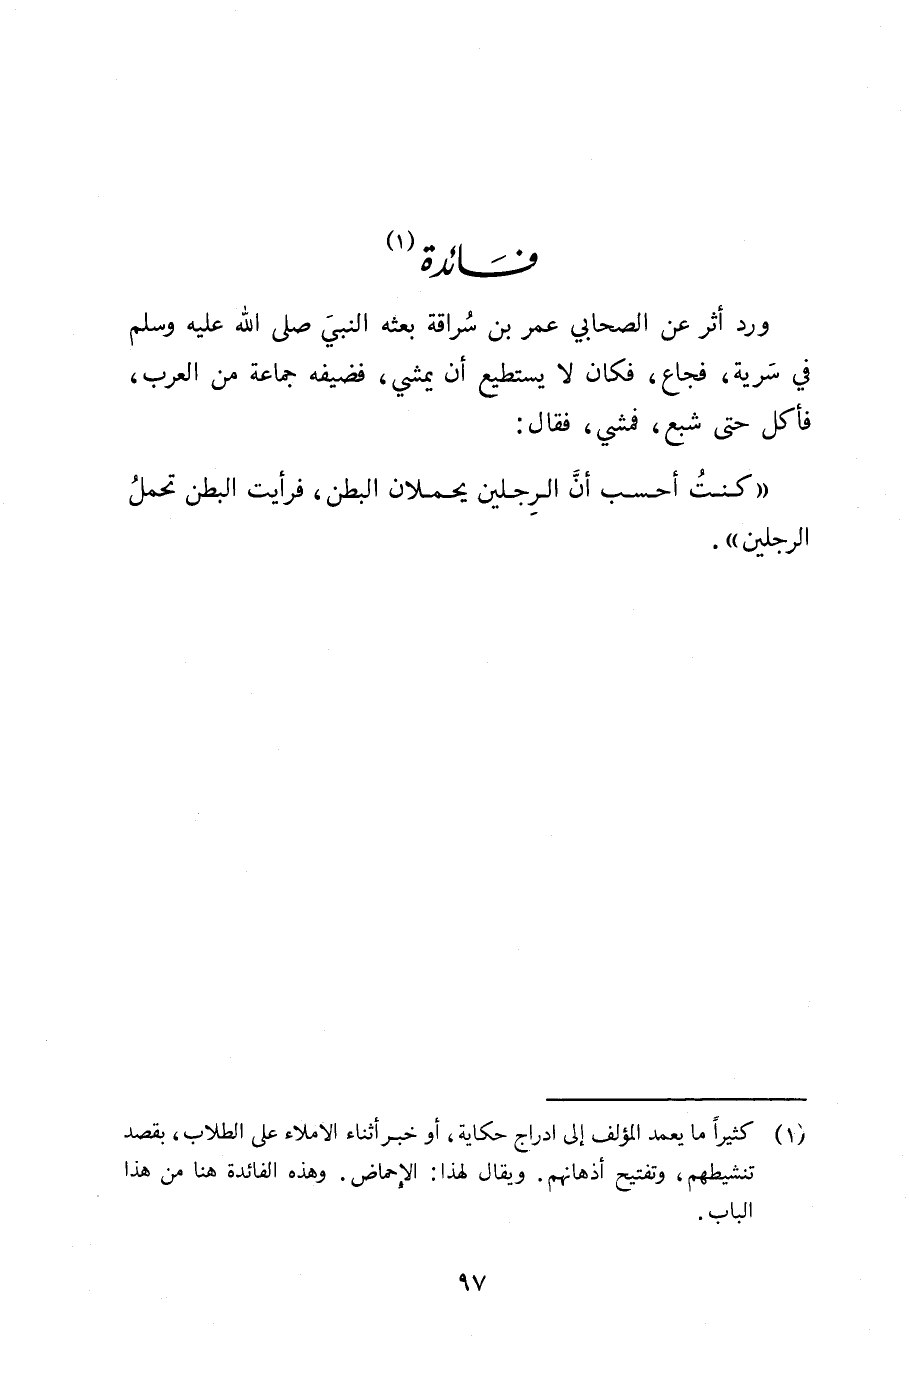 فَائدة (١)
ورد أثر عن الصحابي عمر بن سُراقة بعثه النبيَ صلى الله عليه وسلم
في سَرية، فجاع، فكان لا يستطيع أن يمشي، فضيفه جماعة من العرب،
فأكل حتى شبع، فمشي، فقال:
«كنتُ أحسب أنَّ الرِجلين يحملان البطن، فرأيت البطن تحملُ
الرجلين».
(١) كثيراً ما يعمد المؤلف إلى ادراج حكاية، أو خبر أثناء الاملاء على الطلاب، بقصد
تنشيطهم، وتفتيح أذهانهم. ويقال لهذا: الإحماض. وهذه الفائدة هنا من هذا
الباب.
٩٧